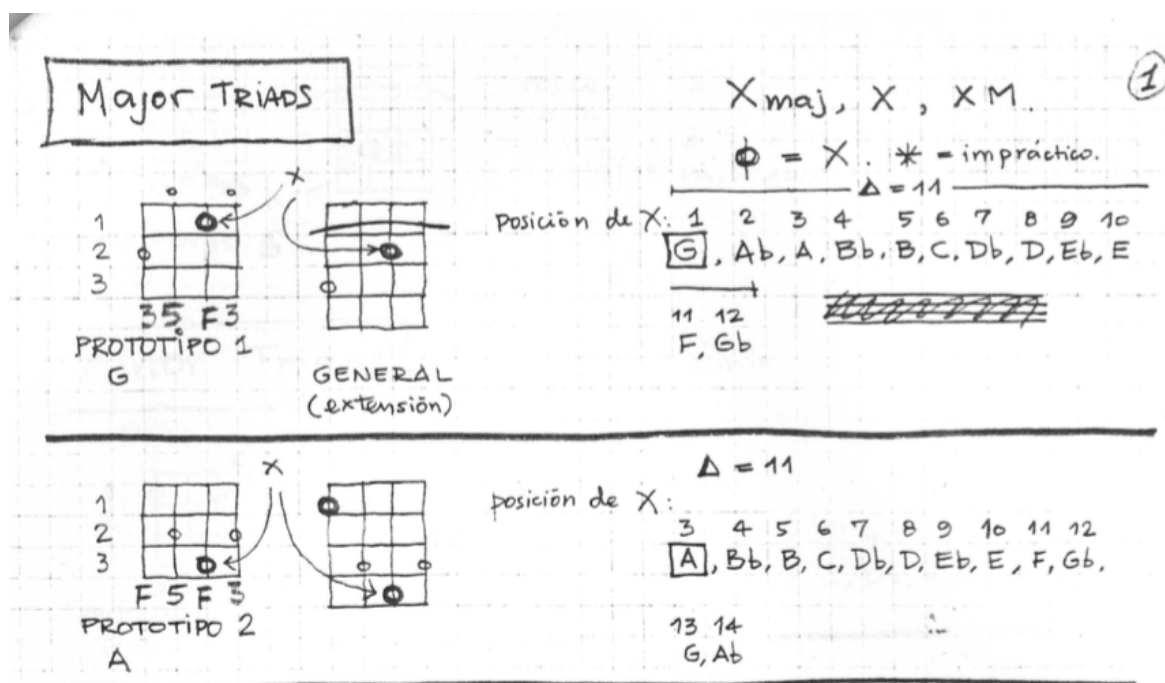 Major TRIADS
Xmaj, X, XM.
1
Φ = X. * = impráctico.
Δ = 11
X
1
2
3
3 5 F 3
PROTOTIPO 1
G
GENERAL
(extensión)
posición de X: 1 2 3 4 5 6 7 8 9 10
G, Ab, A, Bb, B, C, Db, D, Eb, E
11 12
F, Gb
X
1
2
3
F 5 F 3
PROTOTIPO 2
A
Δ = 11
posición de X:
3 4 5 6 7 8 9 10 11 12
A, Bb, B, C, Db, D, Eb, E, F, Gb,
13 14
G, Ab